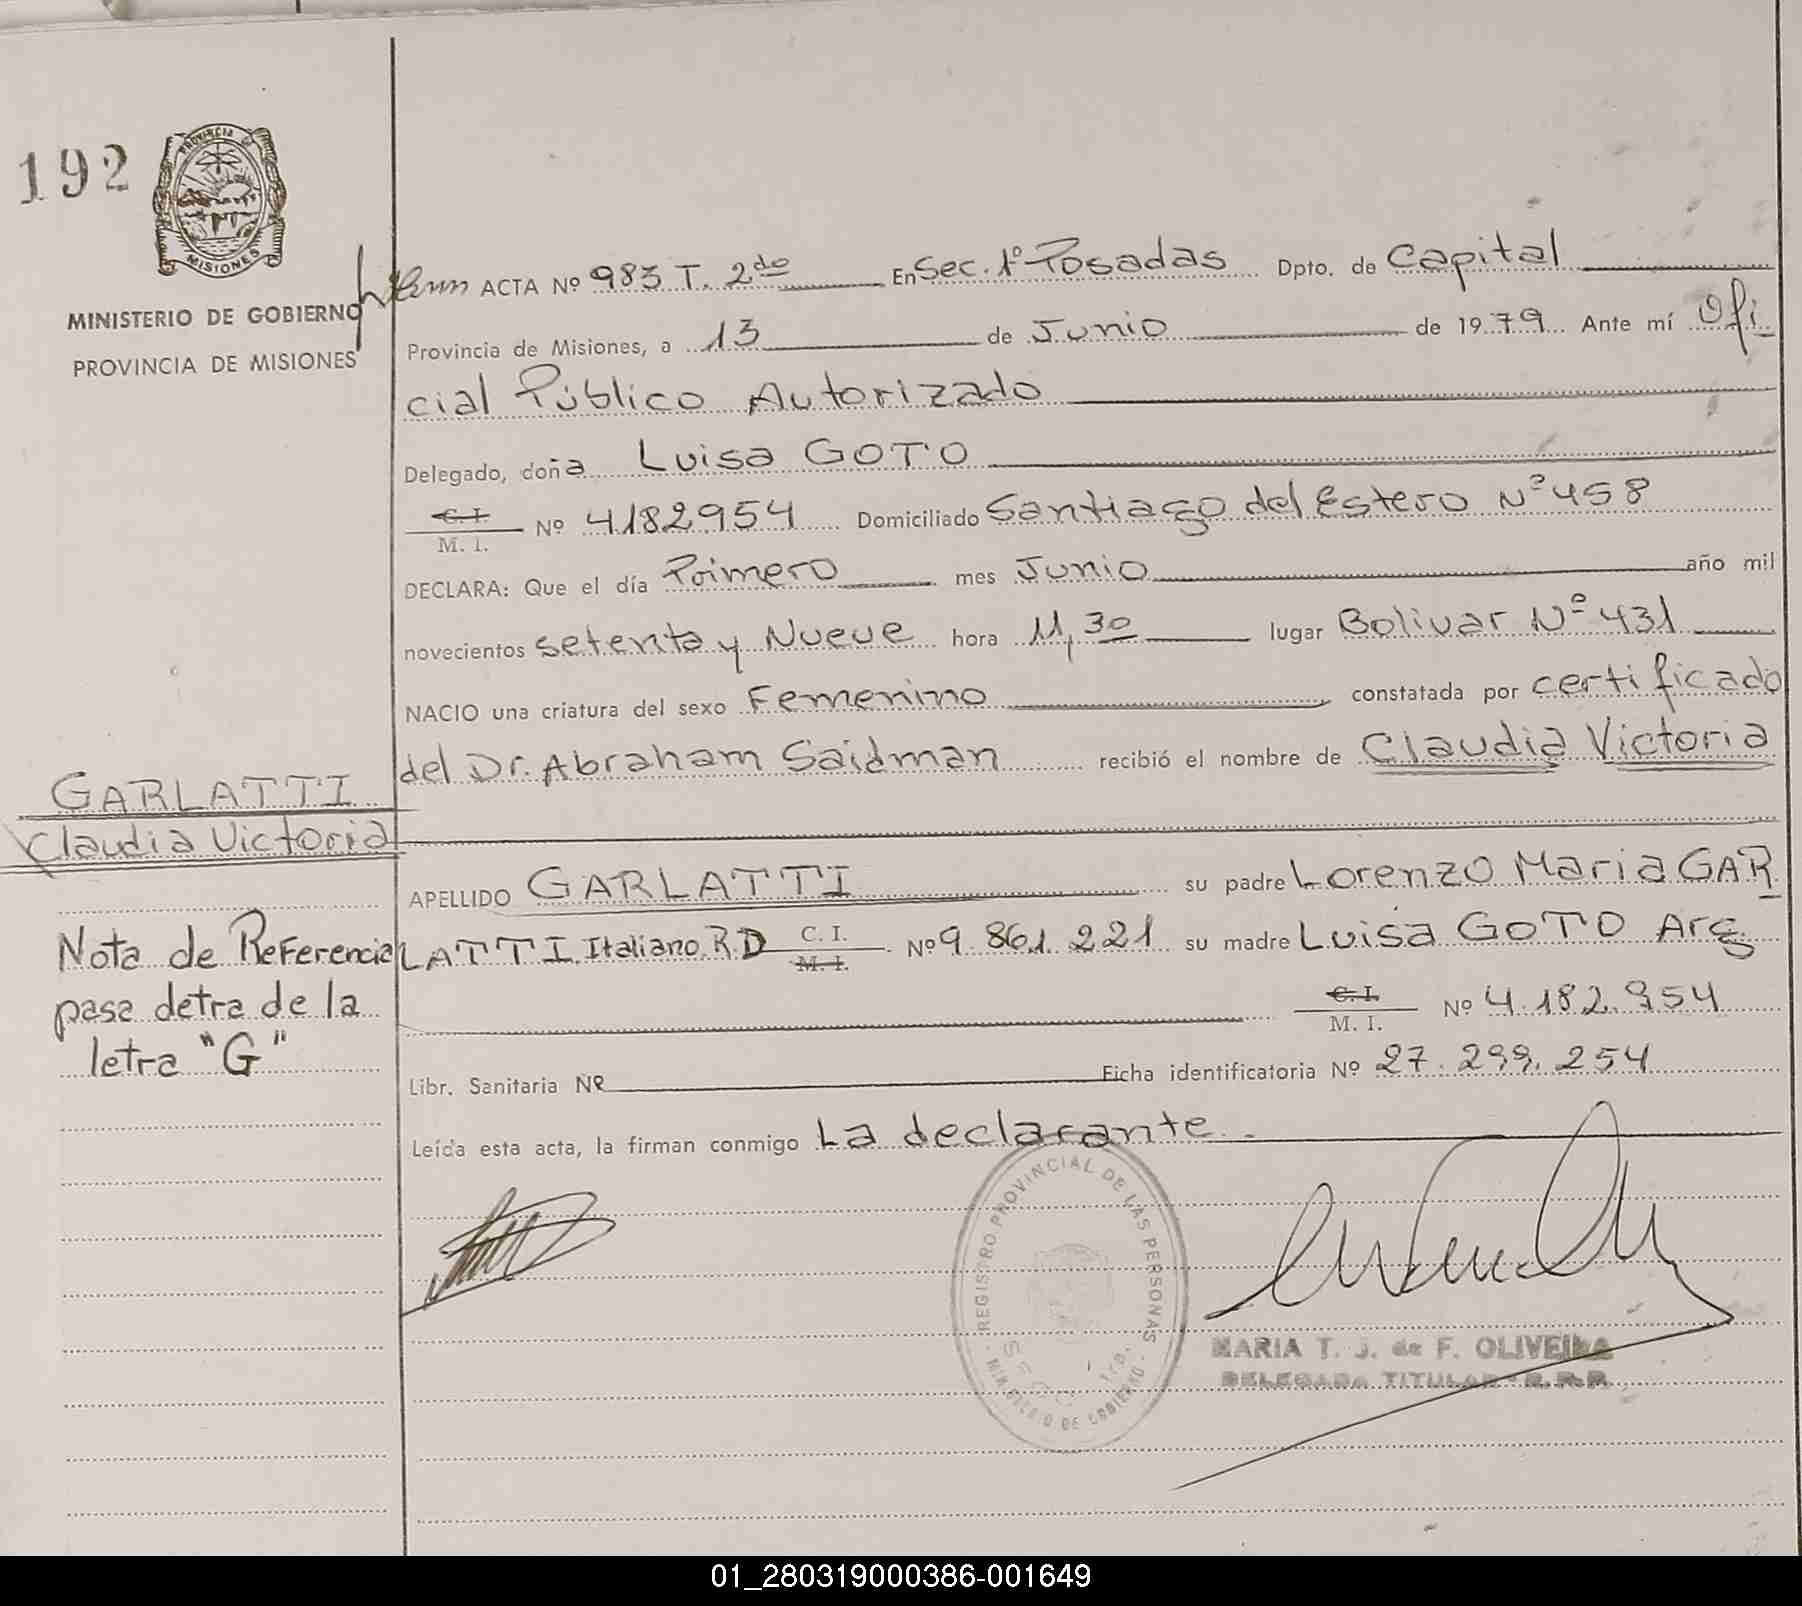 192
PROVINCIA DE
MISIONES
MINISTERIO DE GOBIERNO
PROVINCIA DE MISIONES
ACTA Nº 983 T. 2do En Sec. 1º Posadas Dpto. de Capital
Provincia de Misiones, a 13 de Junio de 1979 Ante mí Ofi
cial Público Autorizado
Delegado, doña Luisa GOTO
C. I. Nº 4182954 Domiciliado Santiago del Estero Nº 458
M. I.
DECLARA: Que el día Primero mes Junio año mil
novecientos setenta y Nueve hora 11,30 lugar Bolivar Nº 431
NACIO una criatura del sexo Femenino constatada por certificado
del Dr. Abraham Saidman recibió el nombre de Claudia Victoria
GARLATTI
Claudia Victoria
APELLIDO GARLATTI su padre Lorenzo Maria GAR
LATTI Italiano, R.D C. I. Nº 9.861.221 su madre Luisa GOTO Arg
M. I.
C. I. Nº 4.182.954
M. I.
Nota de Referencia
pasa detra de la
letra "G"
Libr. Sanitaria Nº Ficha identificatoria Nº 27.299.254
Leída esta acta, la firman conmigo La declarante.
REGISTRO PROVINCIAL DE LAS PERSONAS
MINISTERIO DE GOBIERNO
MARIA T. J. de F. OLIVEIRA
DELEGADA TITULAR R. P. P.
01_280319000386-001649